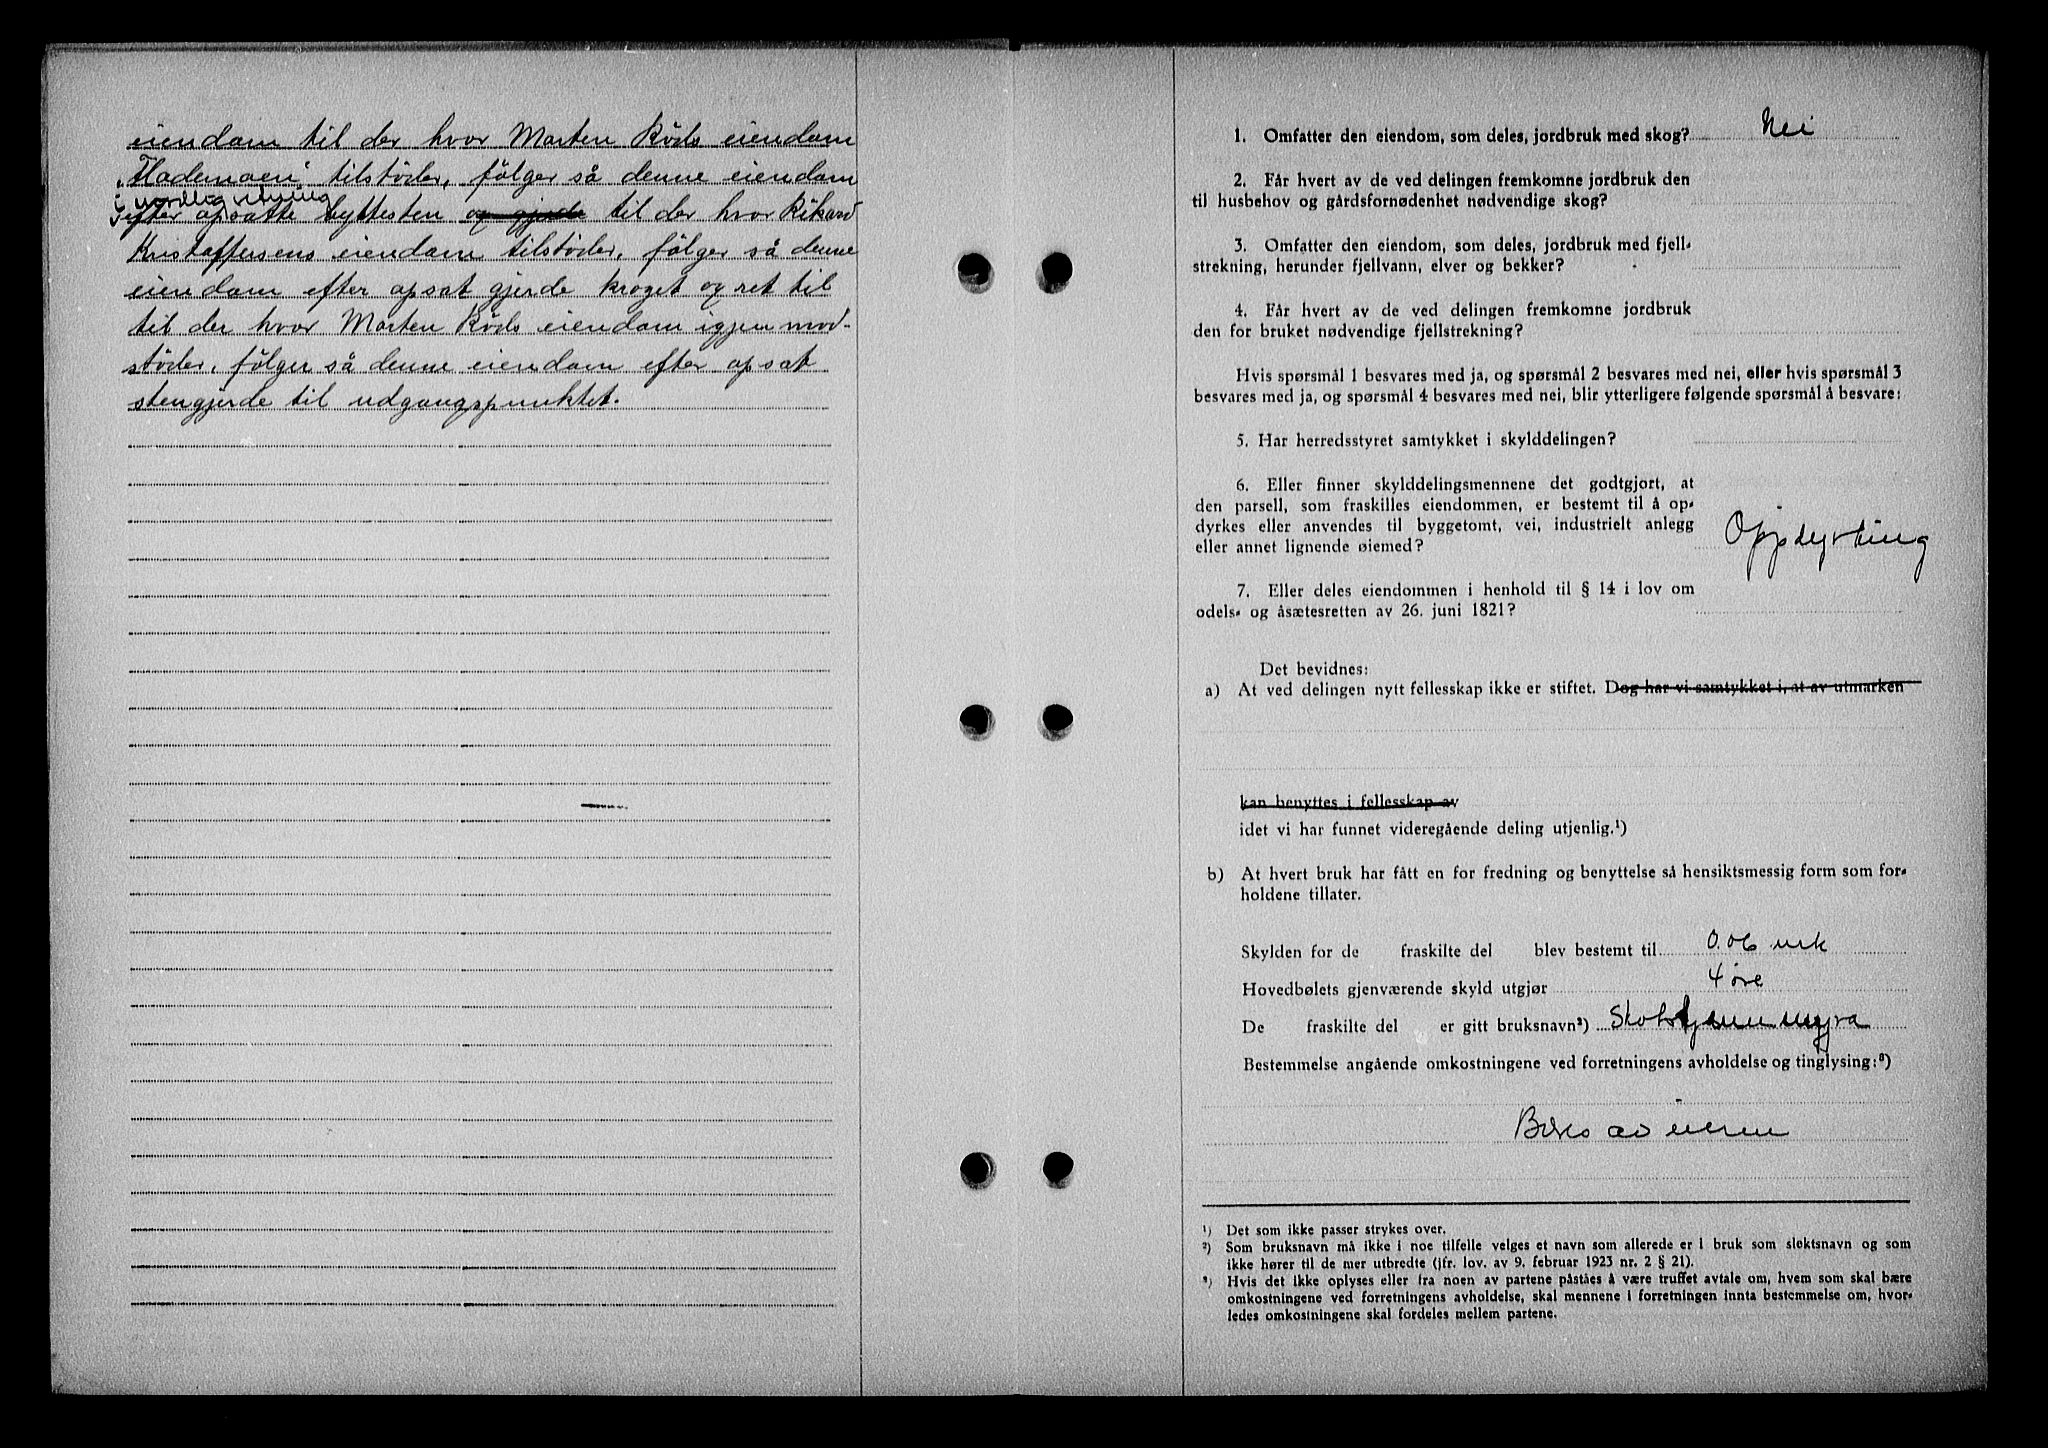 eiendom til der hvor Morten Röds eiendom
„Flademoen" tilstöder, fölger så denne eiendom
i nordlig retning
efter opsatte byttesten og gjerde til der hvor Rikard
Kristoffersens eiendom tilstöder, fölger så denne
eiendom efter opsat gjerde kroget og ret til
til der hvor Morten Röds eiendom igjen mod-
stöder, fölger så denne eiendom efter opsat
stengjerde til udgangspunktet.
1. Omfatter den eiendom, som deles, jordbruk med skog? Nei
2. Får hvert av de ved delingen fremkomne jordbruk den
til husbehov og gårdsfornødenhet nødvendige skog?
3. Omfatter den eiendom, som deles, jordbruk med fjell-
strekning, herunder fjellvann, elver og bekker?
4. Får hvert av de ved delingen fremkomne jordbruk
den for bruket nødvendige fjellstrekning?
Hvis spørsmål 1 besvares med ja, og spørsmål 2 besvares med nei, eller hvis spørsmål 3
besvares med ja, og spørsmål 4 besvares med nei, blir ytterligere følgende spørsmål å besvare:
5. Har herredsstyret samtykket i skylddelingen?
6. Eller finner skylddelingsmennene det godtgjort, at
den parsell, som fraskilles eiendommen, er bestemt til å op-
dyrkes eller anvendes til byggetomt, vei, industrielt anlegg
eller annet lignende øiemed? Oppdyrking
7. Eller deles eiendommen i henhold til § 14 i lov om
odels- og åsætesretten av 26. juni 1821?
Det bevidnes:
a) At ved delingen nytt fellesskap ikke er stiftet. Dog har vi samtykket i, at av utmarken
kan benyttes i fellesskap av
idet vi har funnet videregående deling utjenlig.¹)
b) At hvert bruk har fått en for fredning og benyttelse så hensiktsmessig form som for-
holdene tillater.
Skylden for de fraskilte del blev bestemt til 0.06 mrk
Hovedbølets gjenværende skyld utgjør 4 öre
De fraskilte del er gitt bruksnavn²)
Bestemmelse angående omkostningene ved forretningens avholdelse og tinglysing:³)
Bæres av eieren
¹) Det som ikke passer strykes over.
²) Som bruksnavn må ikke i noe tilfelle velges et navn som allerede er i bruk som slektsnavn og som
ikke hører til de mer utbredte (jfr. lov. av 9. februar 1923 nr. 2 § 21).
³) Hvis det ikke oplyses eller fra noen av partene påståes å være truffet avtale om, hvem som skal bære
omkostningene ved forretningens avholdelse, skal mennene i forretningen innta bestemmelse om, hvor-
ledes omkostningene skal fordeles mellem partene.